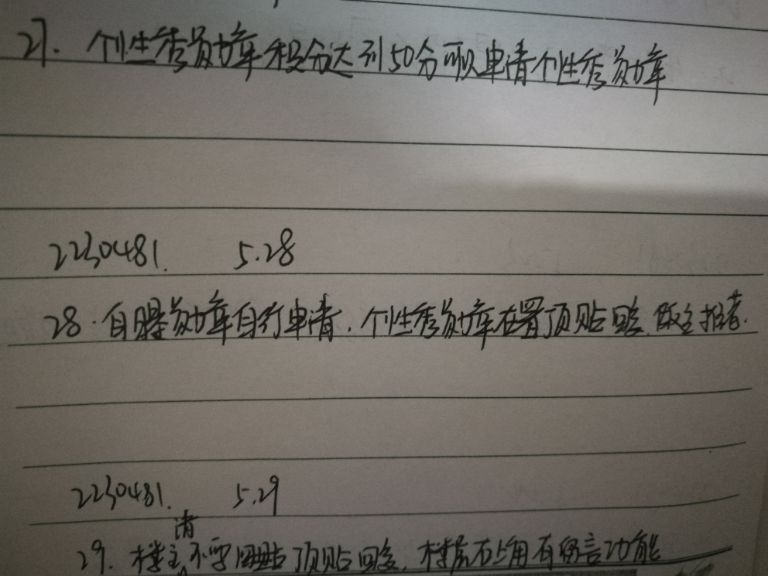 27. 个性秀勋章积分达到50分可以申请个性秀勋章
2230481. 5.28
28. 自曝勋章自行申请. 个性秀勋章在置顶贴回复. 版主推荐.
2230481. 5.29
请
29. 楼主不要用贴顶贴回复. 楼层右上角有留言功能